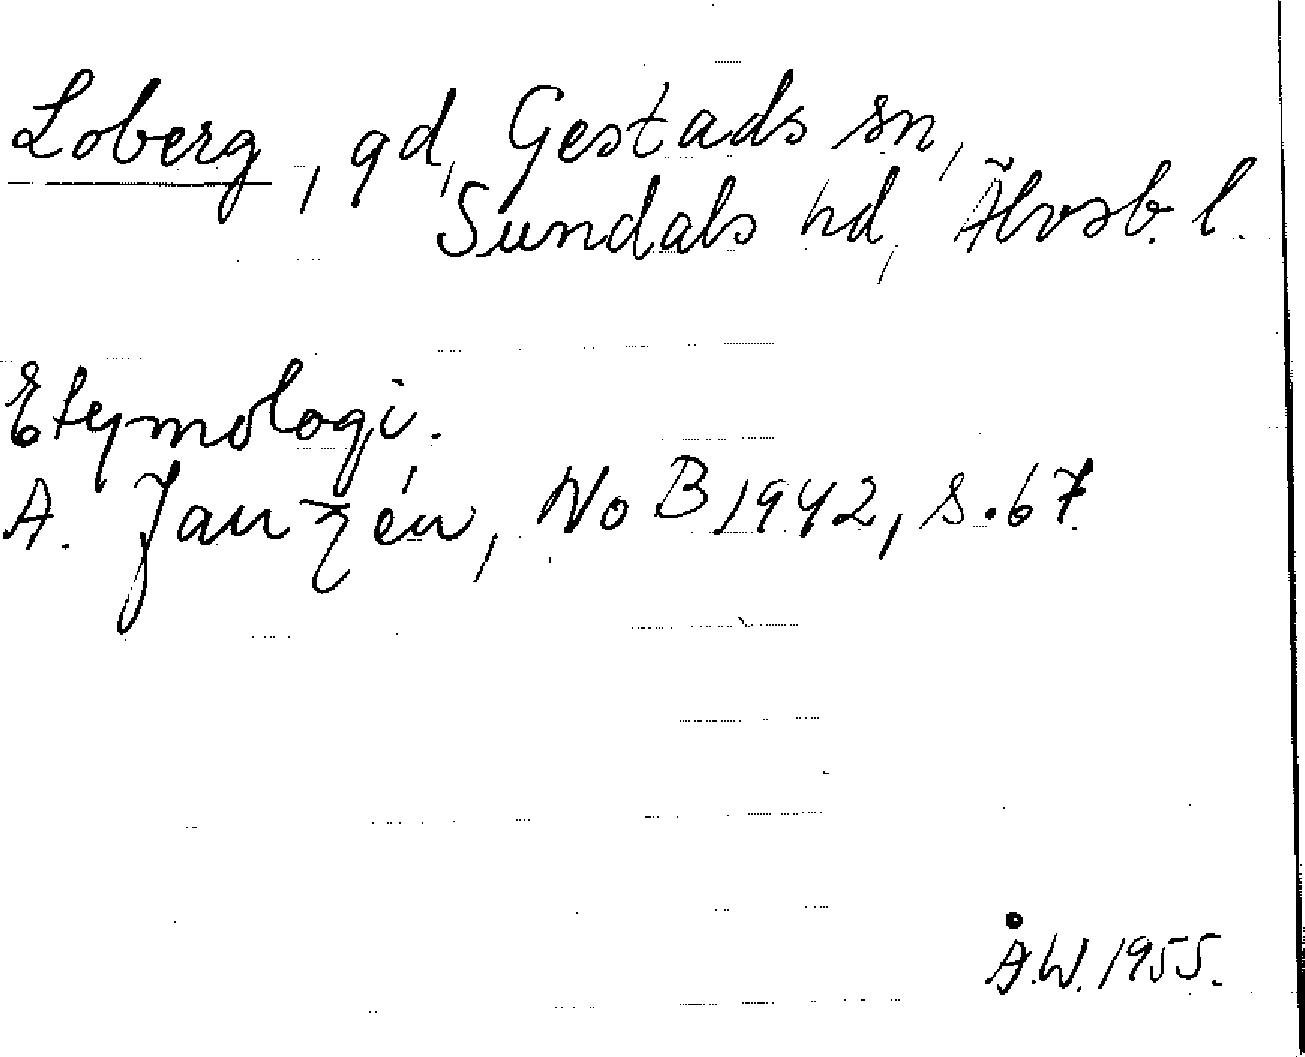 Loberg, gd, Gestads sn,
Sundals hd, Älvsb. l.
Etymologi.
A. Janzén, NoB 1942, s. 67.
Å.W. 1955.